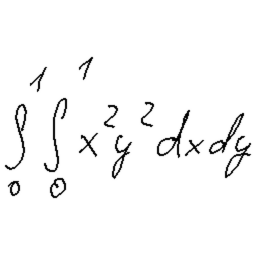 ∫₀¹ ∫₀¹ x²y² dxdy